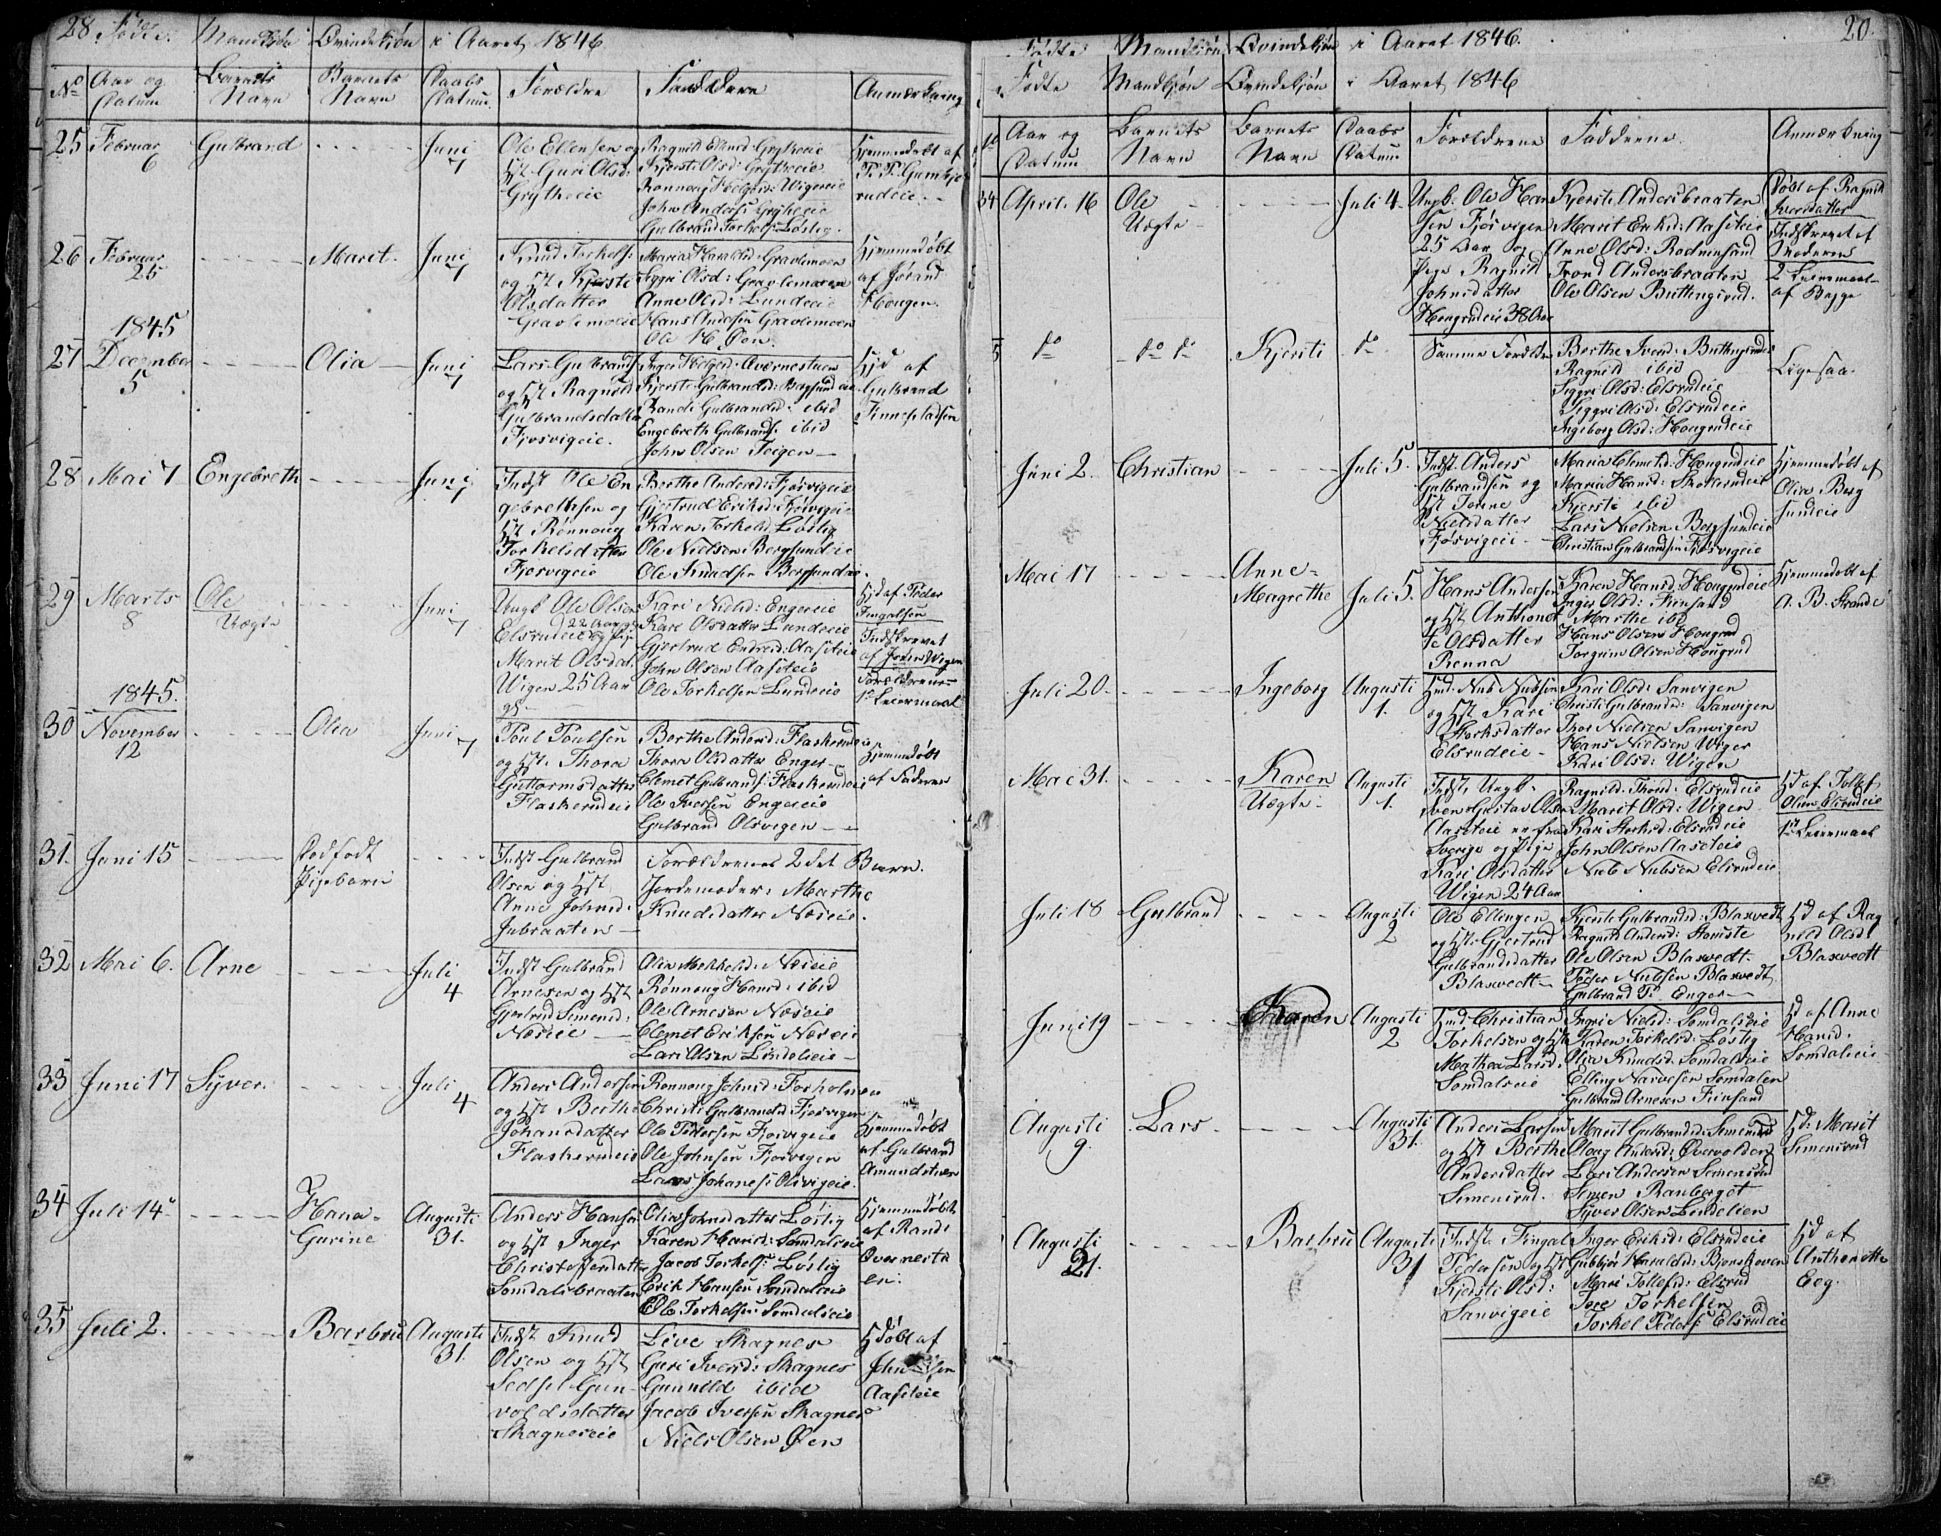 28. Fødte. Mandkjøn Qvindekjøn i Aaret 1846.
No Aar og Datum Barnets Navn Barnets Navn Daabs Datum Forældre Faddere Anmærkning
25 Februar 6 Gulbrand Juni 7
Ole Ellensen og
Hst Guri Olsd:
Grytheeie
Ragnild Ellend: Grytheeie
Kjersti Olsd: Grytheeie
Rønnoug Helged: Wigereie
John Anders: Grytheeie
Gulbrand Torkels: Løslig.
Hjemmedøbt af
26 Februar 25 Marit. Juni 7
Knud Torkels:
og Hst Kjersti
Olsdatter
Gravlemoeie
Maria Haraldsd: Gravlemoen
Siggri Olsd: Gravlemoeen
Anne Olsd: Lundeeie
Hans Andersen Gravlemoen
Ole H. Øen.
Hjemmedøbt
af Jorand
Hougen.
1845
27 December 5 Olia Juni 7
Lars Gulbrands:
og Hst Ragnild
Gulbrandsdatter
Fjøsvigeie.
Inger Helged: Qværnestuen
Kjersti Gulbrandsd: Bergsundeie
Randi Gulbrandsd: ibid
Engebreth Gulbrands: ibid
John Olsen Teigen
Hjd af
Gulbrand
Finnepladsen
28 Mai 7 Engebreth Juni 7
Indst Ole En
gebrethsen og
Hst Rønnoug
Torkelsdatter
Fjøsvigeie
Berthe Andersd: Fjøsvigeie
Gjertrud Eriksd: Fjøsvigeie
Karen Torkelsd: Løslig
Ole Nielsen Bergsundeie
Ole Knudsen Bergsundeie.
29 Marts 8 Ole Uægte Juni 7
Ungk Ole Olsen
Elsrudeie 22 Aar og Pige
Marit Olsdat.
Wigen 25 Aar
gl:
Kari Nielsd: Engereie
Kari Olsdatter Lundeeie
Gjertrud Endresd: Aaseteie
John Olsen Aaseteie
Ole Torkelsen Lundeeie
Hjd af Peder
Fingalsen
Indskrevet
af Jøren Wigen
Forældrenes
1ste Leiermaal
1845.
30 November 12 Olia Juni 7
Poul Poulsen
og Hst. Thora
Guttormsdatter
Flaskerudeie
Berthe Andersd: Flaskerudeie
Thora Olsdatter Enger
Clemet Gulbrands: Flaskerudeie
Ole Iversen Engereie
Gulbrand Olsvigen
Hjemmedøbt
af Faderen
31. Juni 15 Dødfødt Pigebarn
Indst Gulbrand
Olsen og Hst
Anne Johnsd:
Jubraaten
Forældrenes 2det Barn.
Jordemoder: Marthe
Knudsdatter Næseie.
32 Mai 6. Arne Juli 4
Indst Gulbrand
Arnesen og Hst
Gjertrud Simensd:
Næseie
Olia Mekkelsd: Næseie
Rønnoug Hansd: ibid
Ole Arnesen Næseie
Clemet Eriksen Næseie
Lars Olsen Lindelieie
33 Juni 17 Syver. Juli 4
Anders Andersen
og Hst Berthe
Johansdatter
Flaskerudeie
Rønnoug Johnsd: Forholmen
Christi Gulbrandsd Fjøsvigen
Ole Pedersen Fjøsvigeie
Ole Johnsen Fjøsvigen
Lars Johanes: Olsvigeie.
Hjemmedøbt
af Gulbrand
Amundstuen
34 Juli 14 Hana Gurine Augusti 31.
Anders Hansen
og Hst Inger
Christoffersdatter
Somdalsbraaten
Olia Johnsdatter Løslig
Karen Harisd: Somdalseie
Jacob Torkels: Løslig
Erik Hansen Somdalseie
Ole Torkelsen Somdalseie
Hjemmedøbt
af Randi
Qvernestu
en.
35 Juli 2. Barbru Augusti 31.
Indst Knud
Olsen og Hst
Sedsel Gun
voldsdatter
Skagneseie
Live Skagnes
Guri Iversd: Skagnes
Gunnild ibid
Jacob Iversen Skagnes
Niels Olsen Øen
Hdøbt af
Aaseteie
20.
Fødte Mandkjøn Qvindekjøn i Aaret 1846.
Fødte Mandkjøn Qvindekjøn i Aaret 1846
Aar og Datum Barnets Navn Barnets Navn Daabs Datum Forældrene Fadderne. Anmærkning
34 April 16 Ole Uægte Juli 4
Ungk: Ole Han
sen Fjøsvigen
25 Aar og
Pige Ragnild
Johnsdatter
Hougrudeie 38 Aar
Kjersti Andersbraaten
Marit Eriksd: Aaseteie
Anne Olsd: Rodnensand
Trond Andersbraaten
Ole Olsen Buttingsrud.
Døbt af Ragnild
Iversdatter
Indskrevet af
Moderen
2 Leiermaal
af Begge
5 do do do Kjersti do
Samme Forældre
Berthe Iversd: Buttingsrud
Ragnild ibid
Siggri Olsd: Elsrudeie
Siggri Olsd: Elsrudeie
Ingeborg Olsd: Hougrudeie
Ligesaa.
Juni 2. Christian Juli 5.
Indst. Anders
Gulbrandsen og
Hst Jonne
Nielsdatter
Fjøsvigeie
Maria Clemetsd: Hougrudeie
Maria Hansd: Skollerudeie
Kjersti ibid
Lars Nielsen Bergsundeie
Christian Gulbrandsen Fjøsvigeie
Hjemmedøbt af
Olia Berg
sundeie
Mai 17 Anne Magrethe Juli 5.
Hans Andersen
og Hst Anthonet
te Olsdatter
Renna
Karen Hansd: Hougrudeie
Inger Olsd: Finsand
Marthe ibid
Hans Olsen Hougrud
Torgrim Olsen Hougrud
Hjemmedøbt af
A. B. Strande
Juli 20. Ingeborg Augusti 1.
Hmd. Nub Nubsen
og Hst Kari
Storksdatter
Elsrudeie
Kari Olsd: Sanvigen
Christi Gulbrandsd: Sanvigen
Thor Nielsen Sanvigen
Hans Nielsen Wiger
Kari Olsd: Wigen
Mai 31. Karen Uægte Augusti 1.
Indst. Ungk.
Sven Gustav Olsen
Aaseteie er fra
Sverige og Pige
Kari Olsdatter
Wigen 24 Aar
Ragnild Thord: Elsrudeie
Marit Olsd: Wigen
Kari Storksd: Elsrudeie
John Olsen Aaseteie
Nub Nubsen Elsrudeie
Hd af Tollef
Olsen Elsrudeie
1ste Leiermaal
Juli 18 Gulbrand Augusti 2
Ole Ellingen
og Hst. Gjertrud
Gulbrandsdatter
Blaxvedt
Kjersti Gulbrandsd: Blaxvedt
Ragnild Andersd:
Ole Olsen Blaxvedt
Peder Nubsen Blaxvedt
Gulbrand P. Enger
Hd af Rag
nild Olsd:
Blaxvedt
Juni 19 Karen Augusti 2
Hmd: Christian
Torkelsen og Hst
Mathea Larsd:
Somdalseie
Ingri Nielsd: Somdalseie
Karen Torkelsd: Løslig
Olia Knudsd: Somdalseie
Elling Narvesen Somdalen
Gulbrand Arnesen Finsand
Hd af Anne
Hansd:
Somdalseie
Augusti 9. Lars Augusti 31.
Anders Larsen
og Hst Berthe
Andersdatter
Simensrud.
Marit Gulbrandsd: Simensrud
Aloug Andersd: Øvervolden
Lars Andersen Simensrud
Simen Ranberget
Syver Olsen Lindelien
Hd: Marit
Simensrud
Augusti 21. Barbru Augusti 31
Indst. Fingal
Pedersen og Hst
Kjersti Olsd:
Sanvigeie
Inger Eriksd: Elsrudeie
Gubbjør Haraldsd: Bjerkhoven
Mari Tollefsd: Elsrud
Tore Torkelsen
Torkel Peders: Elsrudeie
Hd af
Anthonette
Eeg.